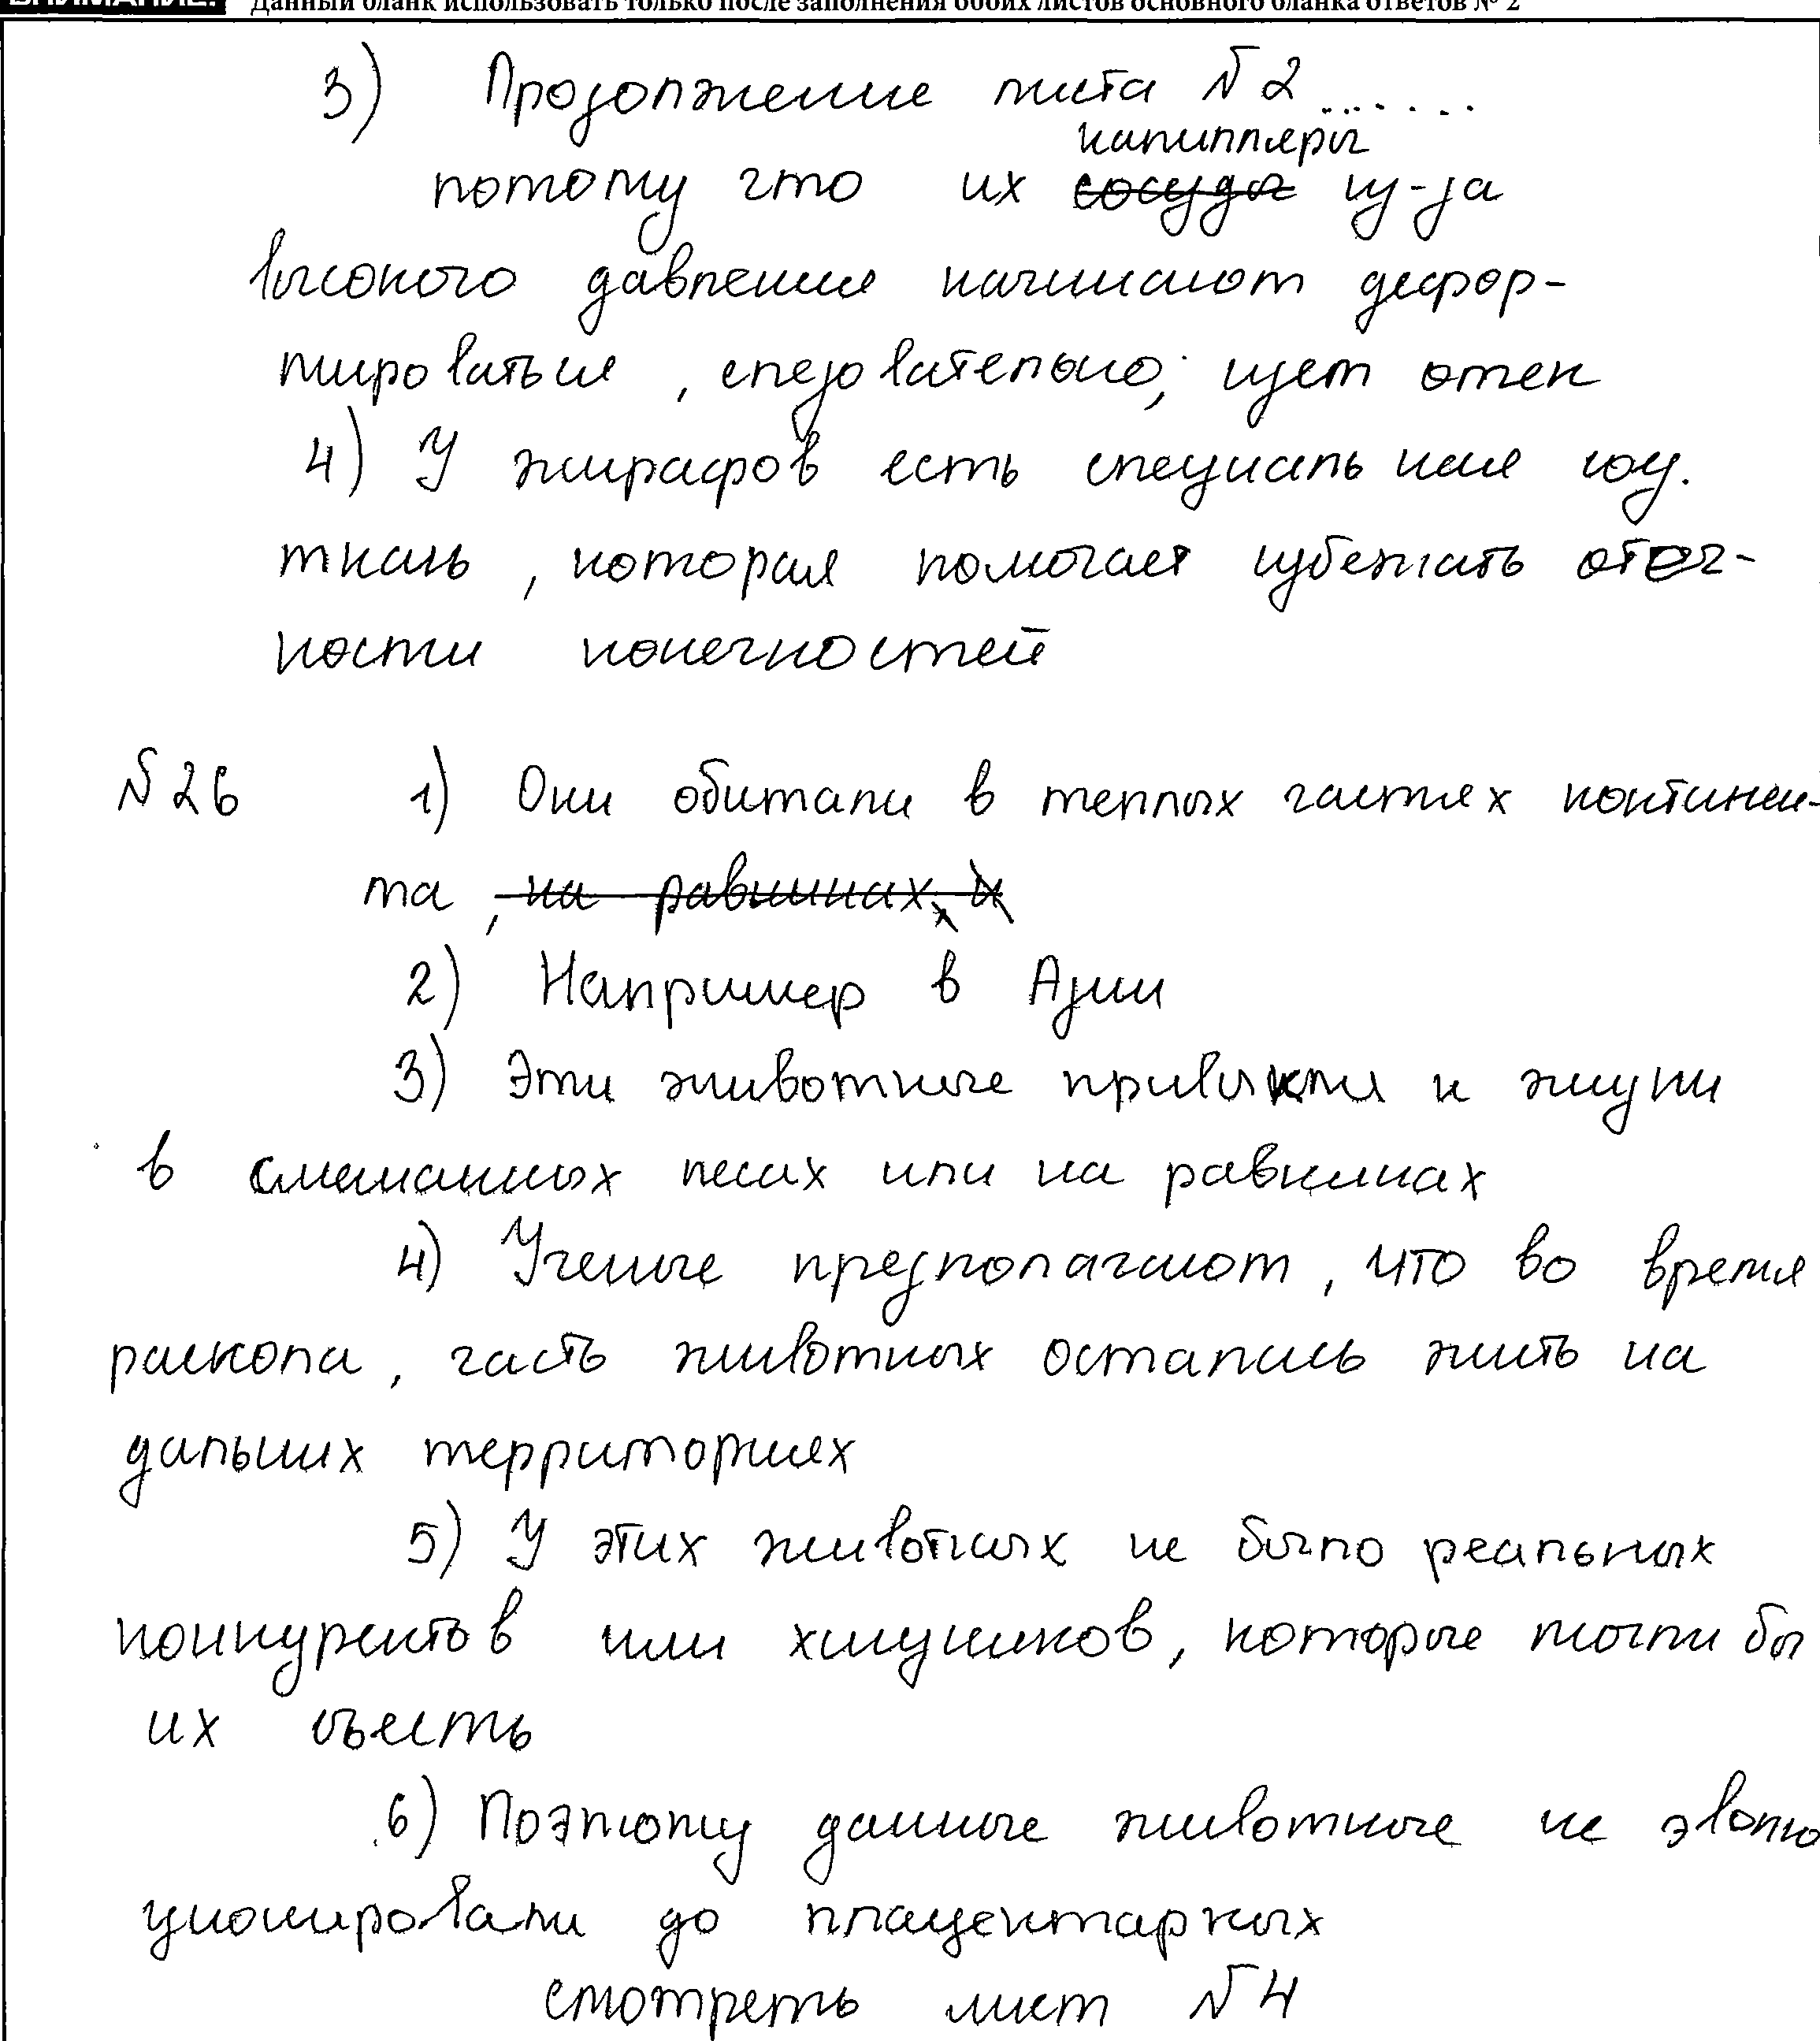 ВНИМАНИЕ! Данный бланк использовать только после заполнения обоих листов основного бланка ответов № 2
3) Продолжение листа №2......
капилляры
потому что их сосуды из-за
высокого давления начинают дефор-
мироваться, следовательно, идет отек
4) У жирафов есть специальная соед.
ткань, которая помогает избежать отеч-
ности конечностей
№26 1) Они обитали в теплых частях континен-
та, на равнинах, и
2) Например в Азии
3) Эти животные привыкли к жизни
в смешанных лесах или на равнинах
4) Ученые предполагают, что во время
раскола, часть животных остались жить на
дальних территориях
5) У этих животных не было реальных
конкурентов или хищников, которые могли бы
их съесть
6) Поэтому данные животные не эволю
ционировали до плацентарных
смотреть лист №4